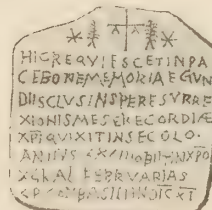 HIC REQVIESCET IN PA
CE BONE MEMORIAE GVN
DIISCLVS IN SPE RESVRRE
XIONIS MESERECORDIÆ
XPI QVIXIT IN SECOLO.
OBIIT IN XPO
KAL FEBRVARIAS
INDIC XI